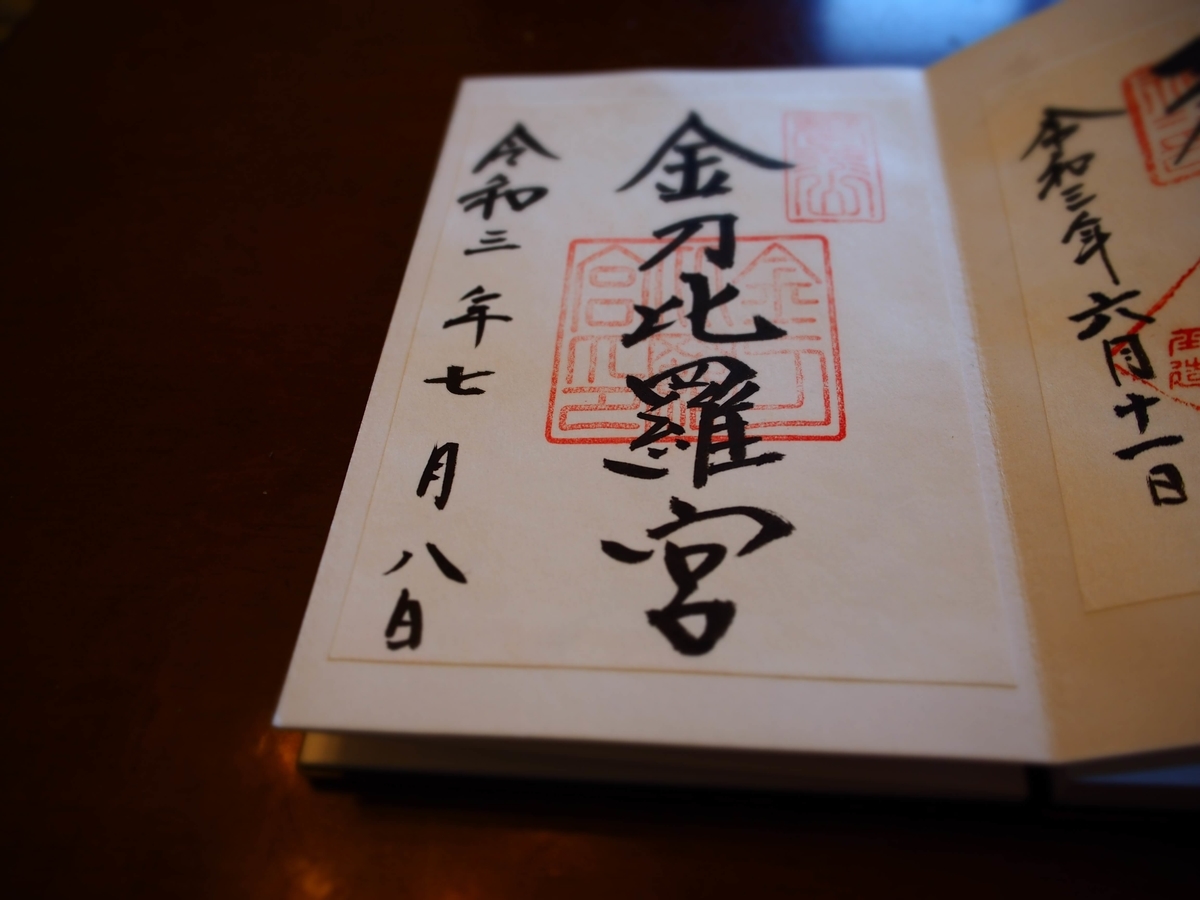 令和三年六月十一日
金刀比羅宮
令和三年七月八日